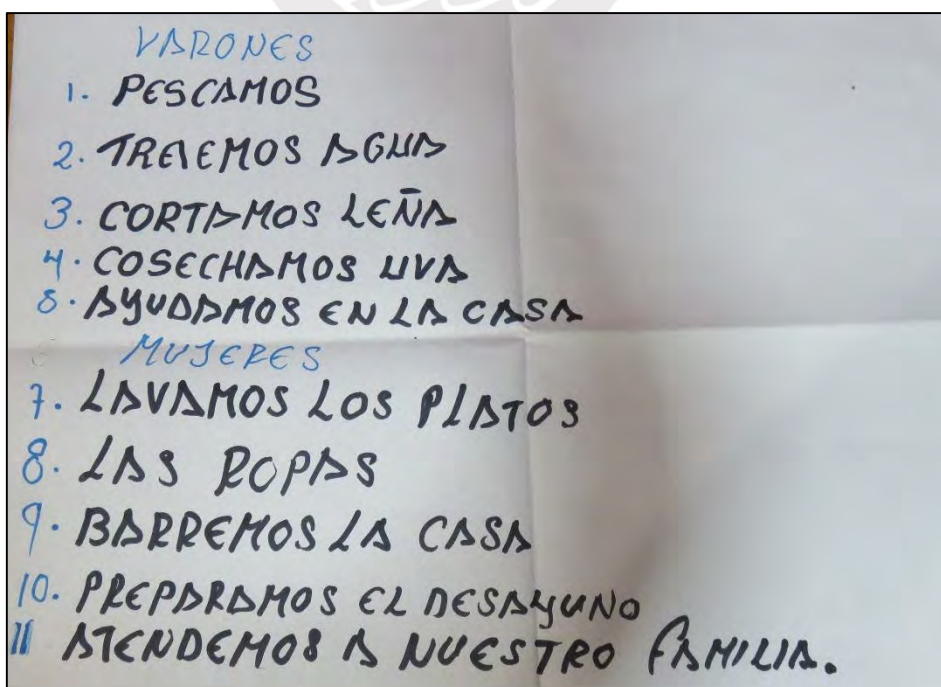 VARONES
1. PESCAMOS
2. TRAEMOS AGUA
3. CORTAMOS LEÑA
4. COSECHAMOS UVA
5. AYUDAMOS EN LA CASA
MUJERES
7. LAVAMOS LOS PLATOS
8. LAS ROPAS
9. BARREMOS LA CASA
10. PREPARAMOS EL DESAYUNO
11 ATENDEMOS A NUESTRO FAMILIA.